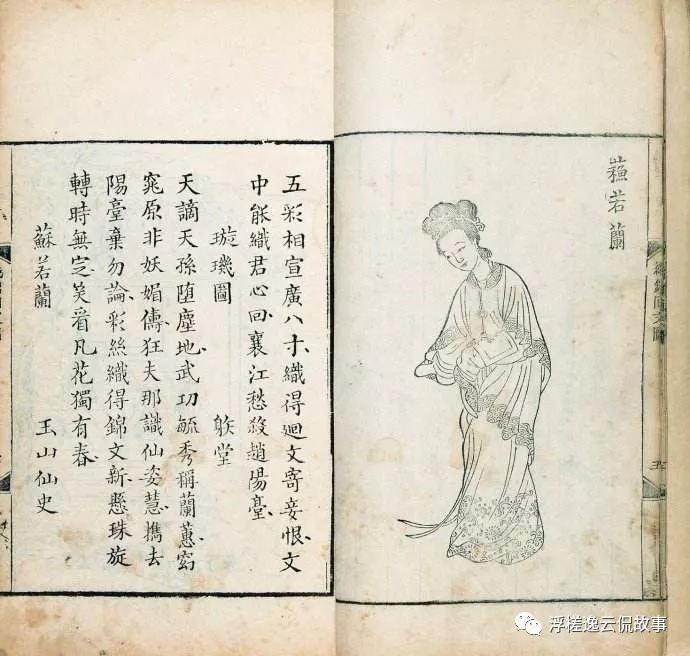 蘓若蘭
五彩相宣廣八寸織得廻文寄妾恨文
中能織君心回襄江愁殺趙陽臺
璇璣圖
天謫天孫堕塵地武功毓秀稱蘭蕙窈
窕原非妖媚儔狂夫那識仙姿慧擕去
陽臺棄勿論彩絲織得錦文新懸珠旋
轉時無㝎笑看凡花獨有春
蘇若蘭 玉山仙史
浮槎逸云侃故事